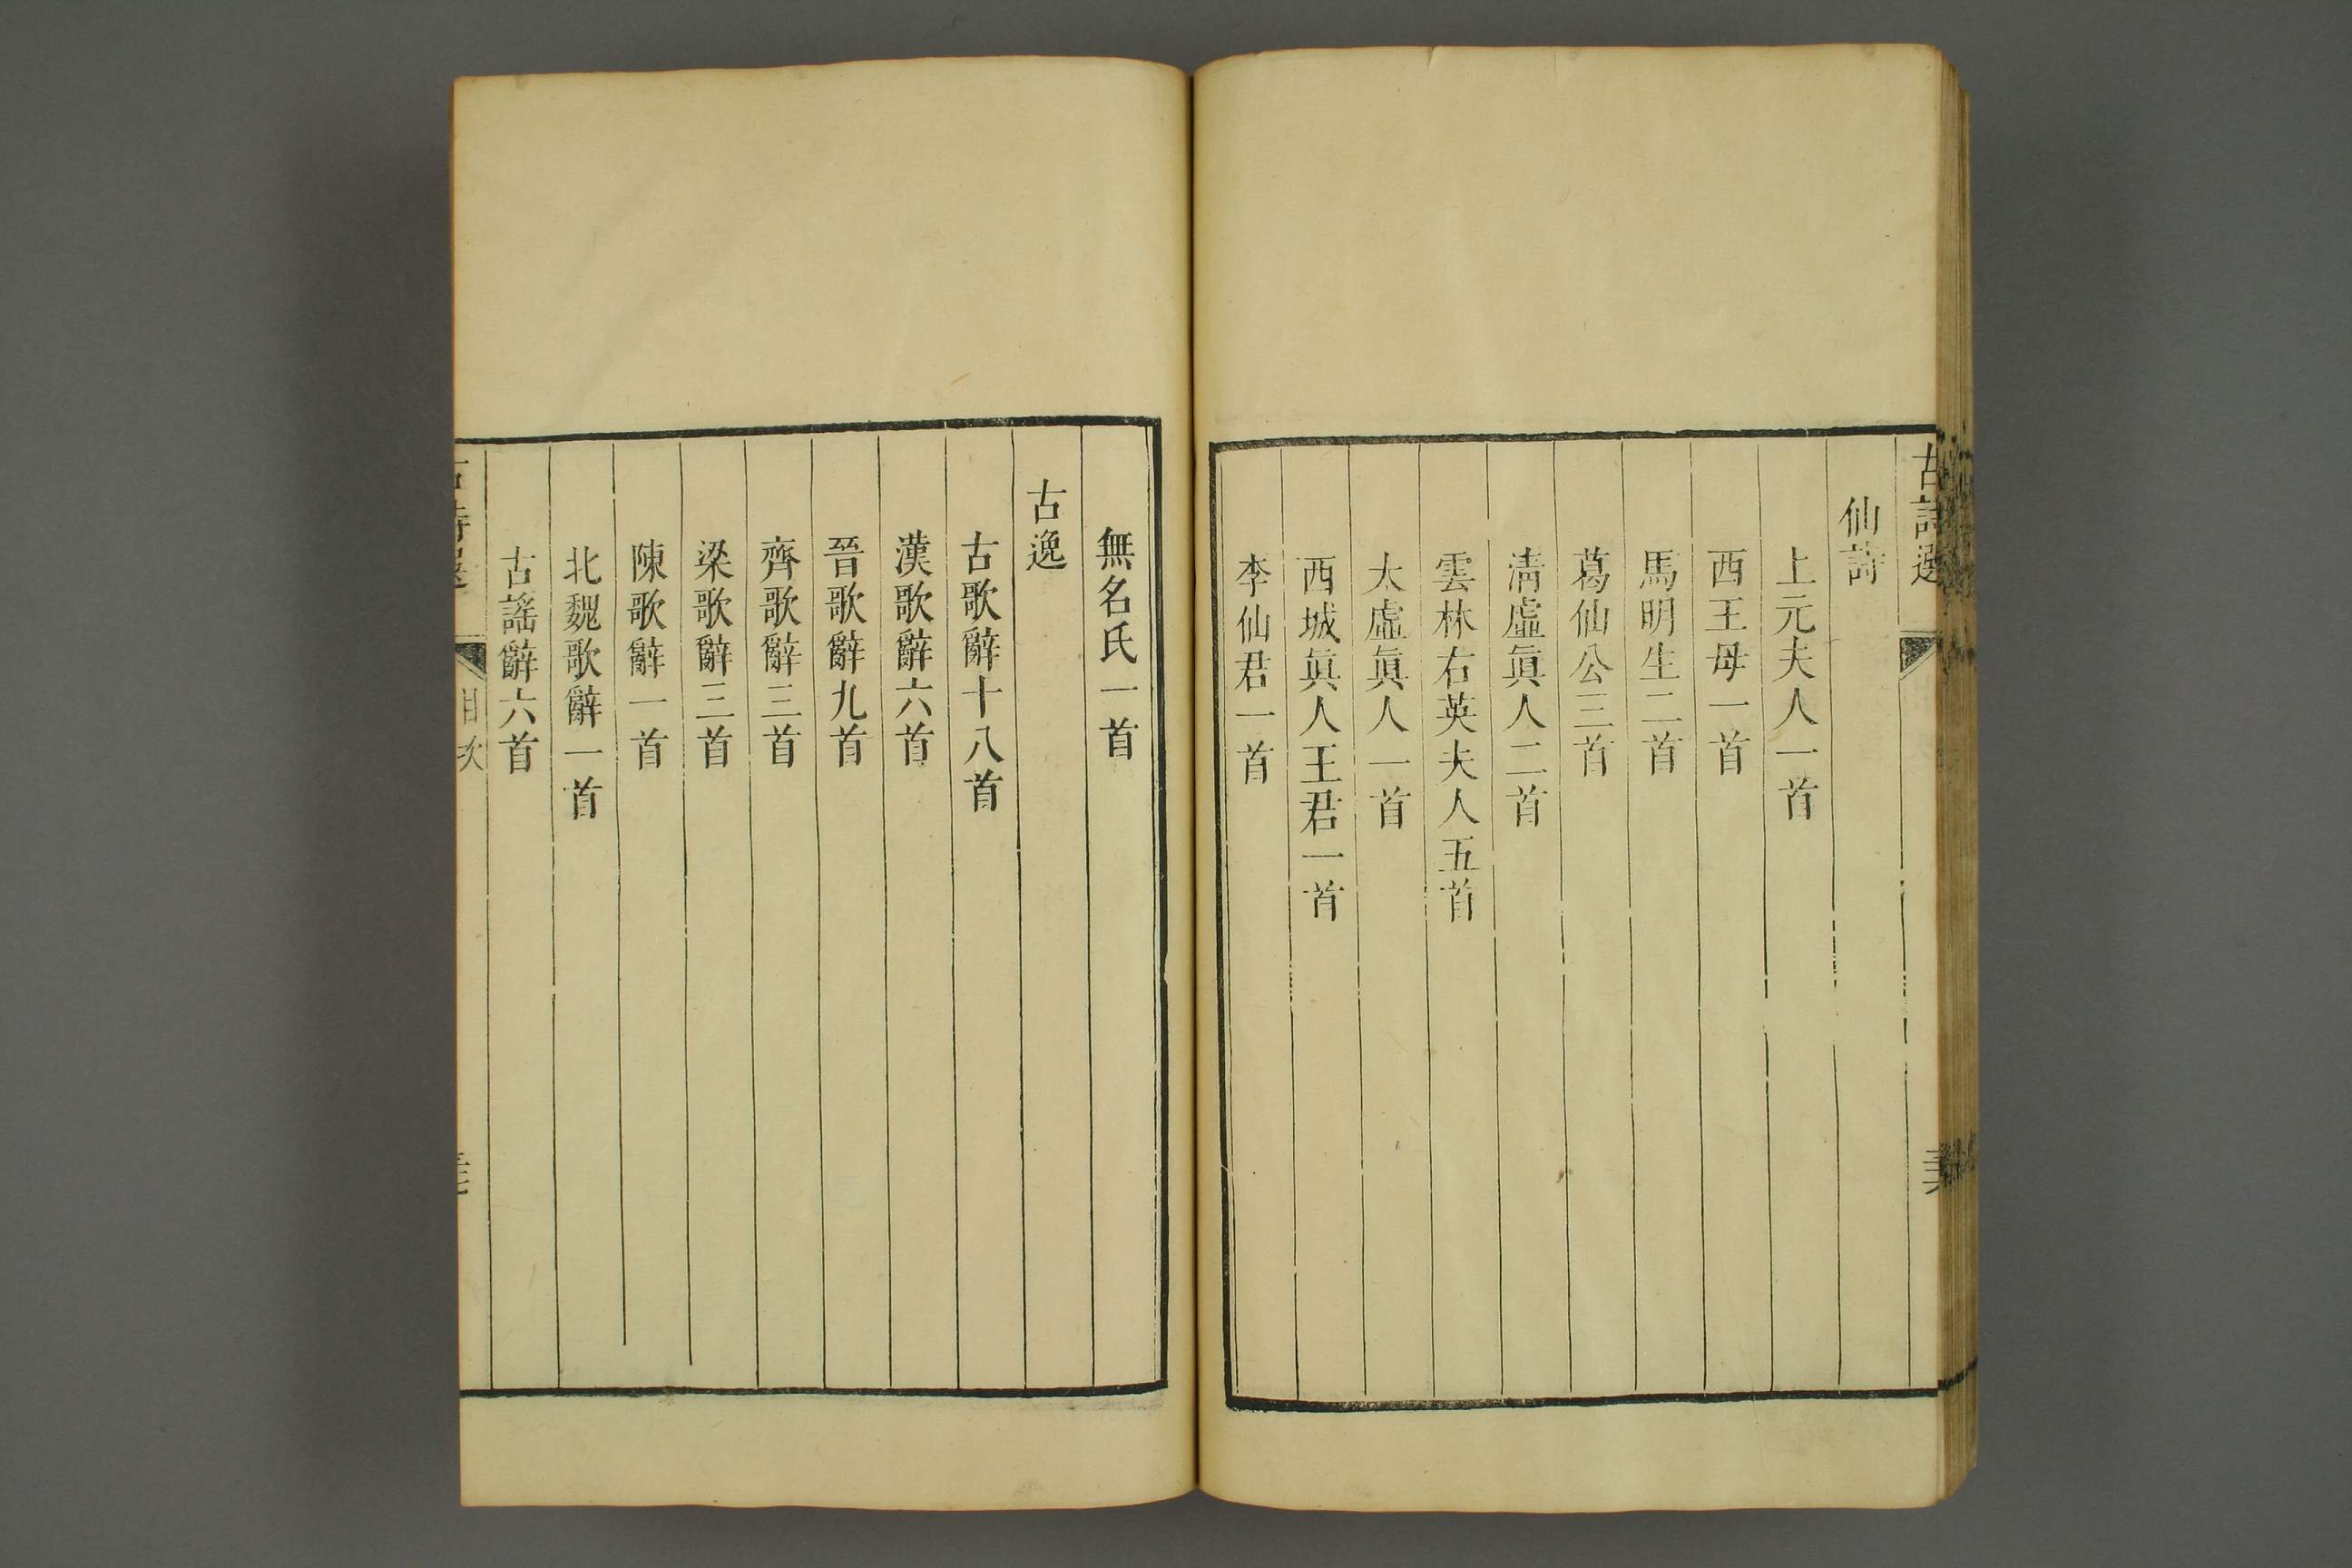 古詩選
仙詩
上元夫人一首
西王母一首
馬明生二首
葛仙公三首
淸虛眞人二首
雲林右英夫人五首
太虛眞人一首
西城眞人王君一首
李仙君一首
無名氏一首
古逸
古歌辭十八首
漢歌辭六首
晉歌辭九首
齊歌辭三首
梁歌辭三首
陳歌辭一首
北魏歌辭一首
古謠辭六首
古詩選
目次